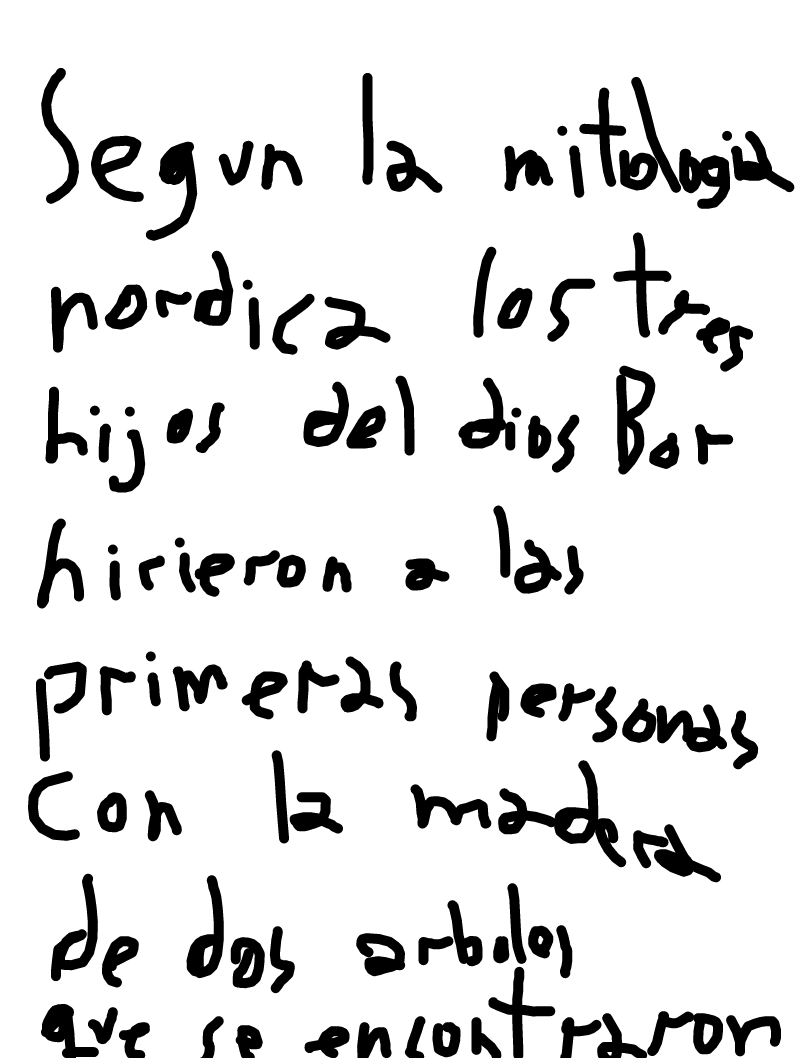 Segun la mitologia
nordica los tres
hijos del dios Bor
hirieron a las
primeras personas
Con la madera
de dos arbolos
que se encontraron